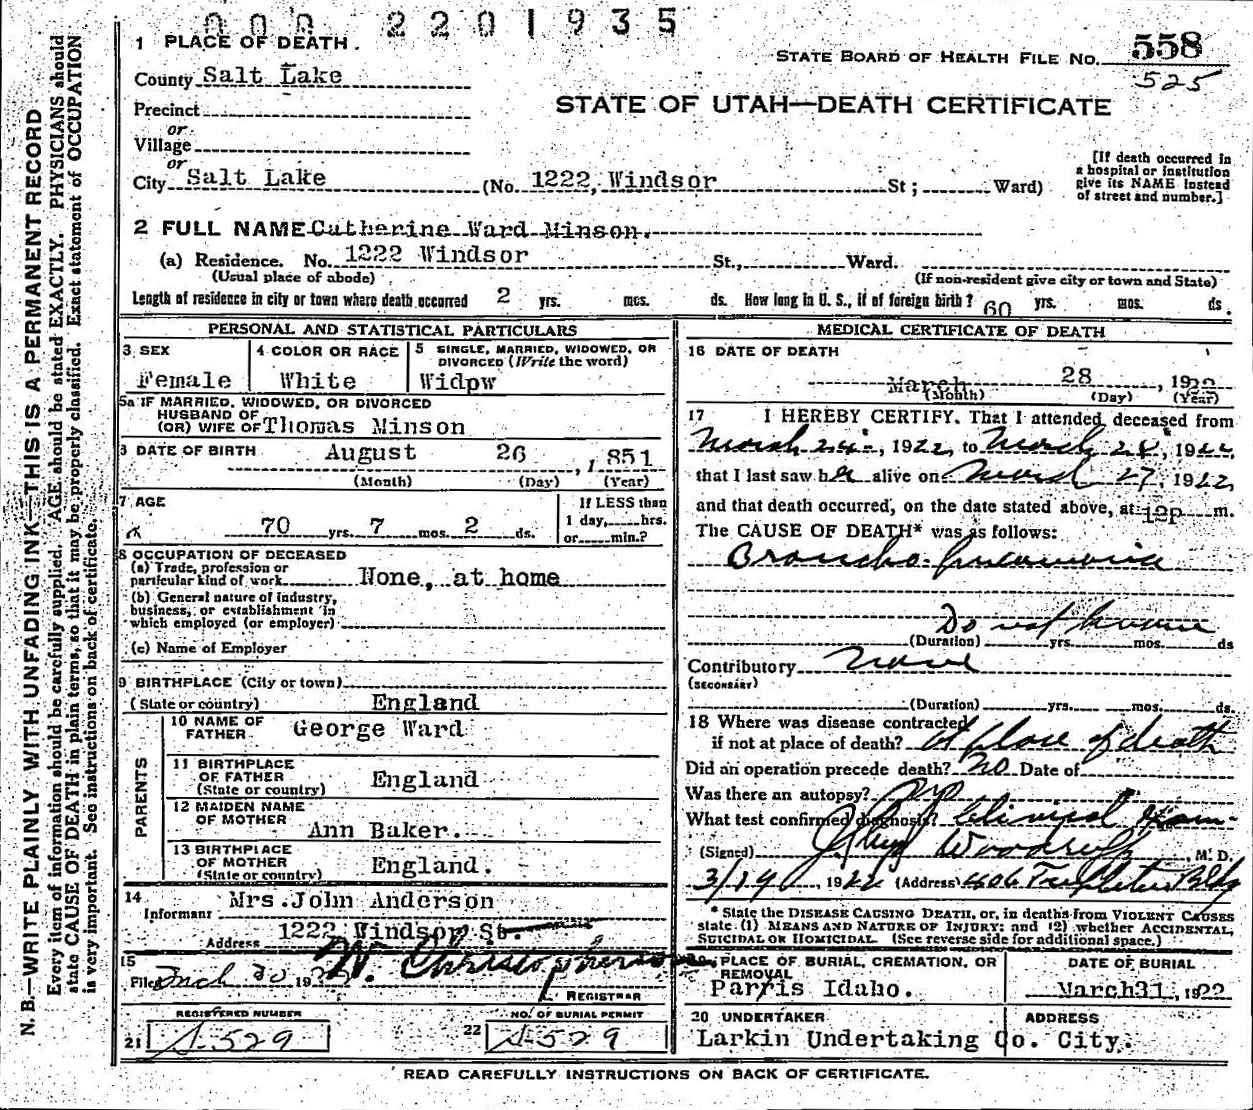 000 2201935
1 PLACE OF DEATH.
County Salt Lake
STATE BOARD OF HEALTH FILE No. 558
525
STATE OF UTAH—DEATH CERTIFICATE
Precinct
or
Village
or
City Salt Lake (No. 1222, Windsor St; Ward)
[If death occurred in
a hospital or institution
give its NAME instead
of street and number.]
2 FULL NAME Catherine Ward Minson.
(a) Residence. No. 1222 Windsor St., Ward.
(Usual place of abode) (If non-resident give city or town and State)
Length of residence in city or town where death occurred 2 yrs. mos. ds. How long in U. S., if of foreign birth? 60 yrs. mos. ds.
PERSONAL AND STATISTICAL PARTICULARS
3 SEX
Female
4 COLOR OR RACE
White
5 SINGLE, MARRIED, WIDOWED, OR
DIVORCED (Write the word)
Widpw
5a IF MARRIED, WIDOWED, OR DIVORCED
HUSBAND OF
(OR) WIFE OF Thomas Minson
6 DATE OF BIRTH August 26, 1851
(Month) (Day) (Year)
7 AGE
70 yrs. 7 mos. 2 ds.
If LESS than
1 day, hrs.
or min.?
8 OCCUPATION OF DECEASED
(a) Trade, profession or
particular kind of work None, at home
(b) General nature of industry,
business, or establishment in
which employed (or employer)
(c) Name of Employer
9 BIRTHPLACE (City or town)
(State or country) England
PARENTS
10 NAME OF
FATHER George Ward
11 BIRTHPLACE
OF FATHER
(State or country) England
12 MAIDEN NAME
OF MOTHER
Ann Baker.
13 BIRTHPLACE
OF MOTHER
(State or country) England.
14
Informant Mrs.John Anderson
Address 1222 Windsor St.
15
Filed Mch 30 1922 W. Christopherson
REGISTRAR
REGISTERED NUMBER
21 A-529
NO. OF BURIAL PERMIT
22 A-529
MEDICAL CERTIFICATE OF DEATH
16 DATE OF DEATH
March 28, 1922
(Month) (Day) (Year)
17 I HEREBY CERTIFY. That I attended deceased from
March 24, 1922, to March 28, 1922,
that I last saw her alive on March 27, 1922,
and that death occurred, on the date stated above, at 12p m.
The CAUSE OF DEATH* was as follows:
Broncho pneumonia
Do not know
(Duration) yrs. mos. ds
Contributory None
(SECONDARY)
(Duration) yrs. mos. ds.
18 Where was disease contracted
if not at place of death? At place of death
Did an operation precede death? no Date of
Was there an autopsy? no
What test confirmed diagnosis? Clinical Exam-
(Signed) Woodruff, M. D.
1922 (Address) 406 Templeton Bldg
* State the DISEASE CAUSING DEATH, or, in deaths from VIOLENT CAUSES
state (1) MEANS AND NATURE OF INJURY; and (2) whether ACCIDENTAL,
SUICIDAL OR HOMICIDAL. (See reverse side for additional space.)
PLACE OF BURIAL, CREMATION, OR
REMOVAL
Parris Idaho.
DATE OF BURIAL
March31, 1922
20 UNDERTAKER
Larkin Undertaking Co.
ADDRESS
City.
READ CAREFULLY INSTRUCTIONS ON BACK OF CERTIFICATE.
N. B.—WRITE PLAINLY WITH UNFADING INK—THIS IS A PERMANENT RECORD
Every item of information should be carefully supplied. AGE should be stated EXACTLY. PHYSICIANS should
state CAUSE OF DEATH in plain terms, so that it may be properly classified. Exact statement of OCCUPATION
is very important. See instructions on back of certificate.